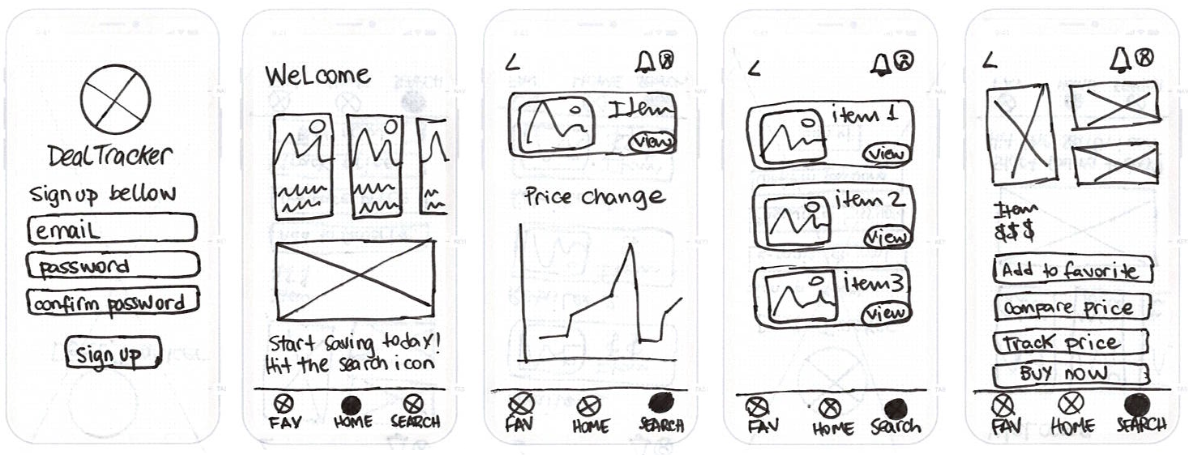 DealTracker
Sign up bellow
email
password
confirm password
Sign up
Welcome
Start saving today!
Hit the search icon
FAV HOME SEARCH
Item
View
Price change
FAV HOME SEARCH
item 1
View
item 2
View
item3
View
FAV HOME Search
Item
$$$
Add to favorite
Compare price
Track price
Buy now
FAV HOME SEARCH